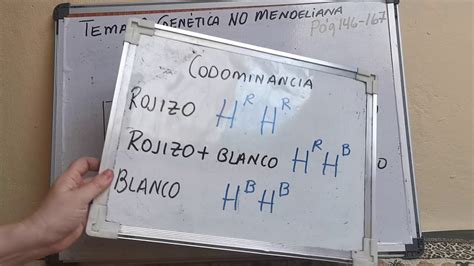 TEMA GENÉTICA NO MENDELIANA
Pág 146-167
CODOMINANCIA
ROJIZO H^R H^R
ROJIZO + BLANCO H^R H^B
BLANCO H^B H^B